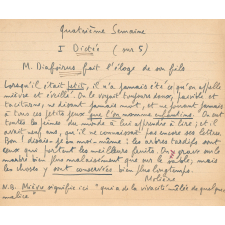 Quatrième Semaine
I Dictée (sur 5)
M. Diafoirus fait l'éloge de son fils
Lorsqu'il était petit, il n'a jamais été ce qu'on appelle
mièvre et éveillé. On le voyait toujours doux, paisible et
taciturne, ne disant jamais mot, et ne jouant jamais
à tous ces petits jeux que l'on nomme enfantins. On eut
toutes les peines du monde à lui apprendre à lire ; et il
avait neuf ans, qu'il ne connaissait pas encore ses lettres.
Bon ! disais-je en moi-même : les arbres tardifs sont
ceux qui portent les meilleurs fruits. On grave sur le
marbre bien plus malaisément que sur le sable ; mais
les choses y sont conservées bien plus longtemps.
Molière
N.B. Mièvre signifie ici "qui a de la vivacité mêlée de quelque
malice"